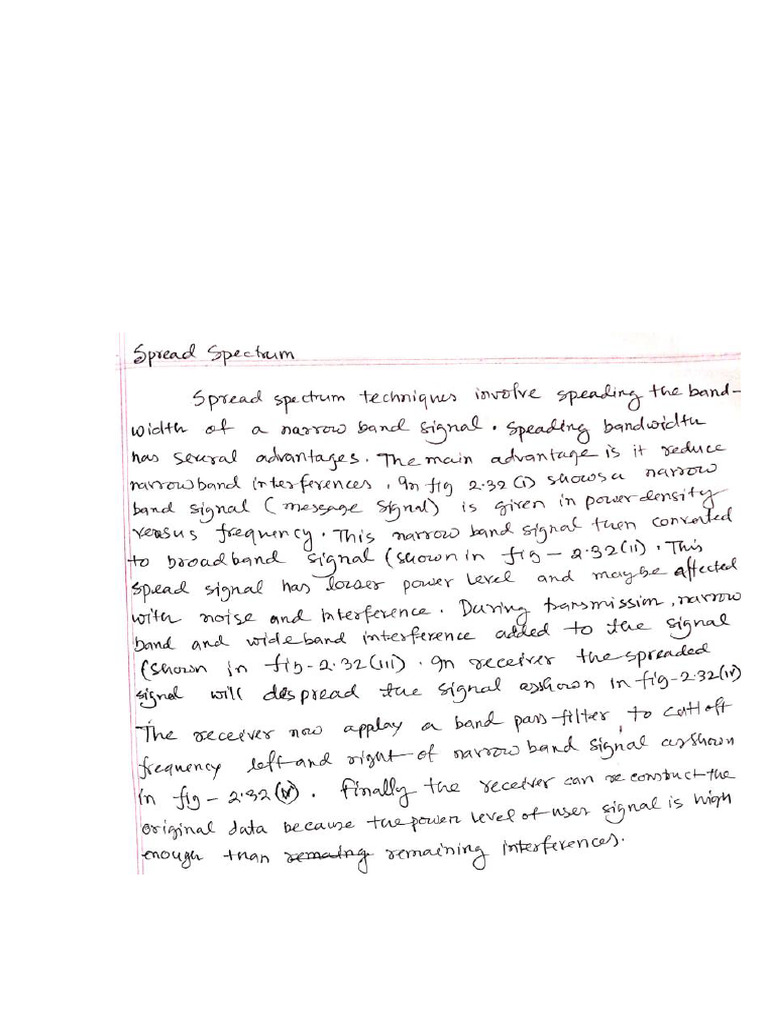 Spread Spectrum
Spread spectrum techniques involve speading the band-
width of a narrow band signal. Speading bandwidth
has several advantages. The main advantage is it reduce
narrowband interferences. In fig 2.32 (i) shows a narrow
band signal (message signal) is given in power density
versus frequency. This narrow band signal then converted
to broadband signal (shown in fig - 2.32(ii). This
spead signal has lower power level and maybe affected
with noise and interference. During transmission, narrow
band and wideband interference added to the signal
(shown in fig-2.32(iii). In receiver the spreaded
signal will despread the signal as shown in fig-2.32(iv)
The receiver now applay a band pass filter to cutt off
frequency left and right of narrow band signal as shown
in fig - 2.32(v). Finally the receiver can re construct the
original data because the power level of user signal is high
enough than remaing remaining interferences.